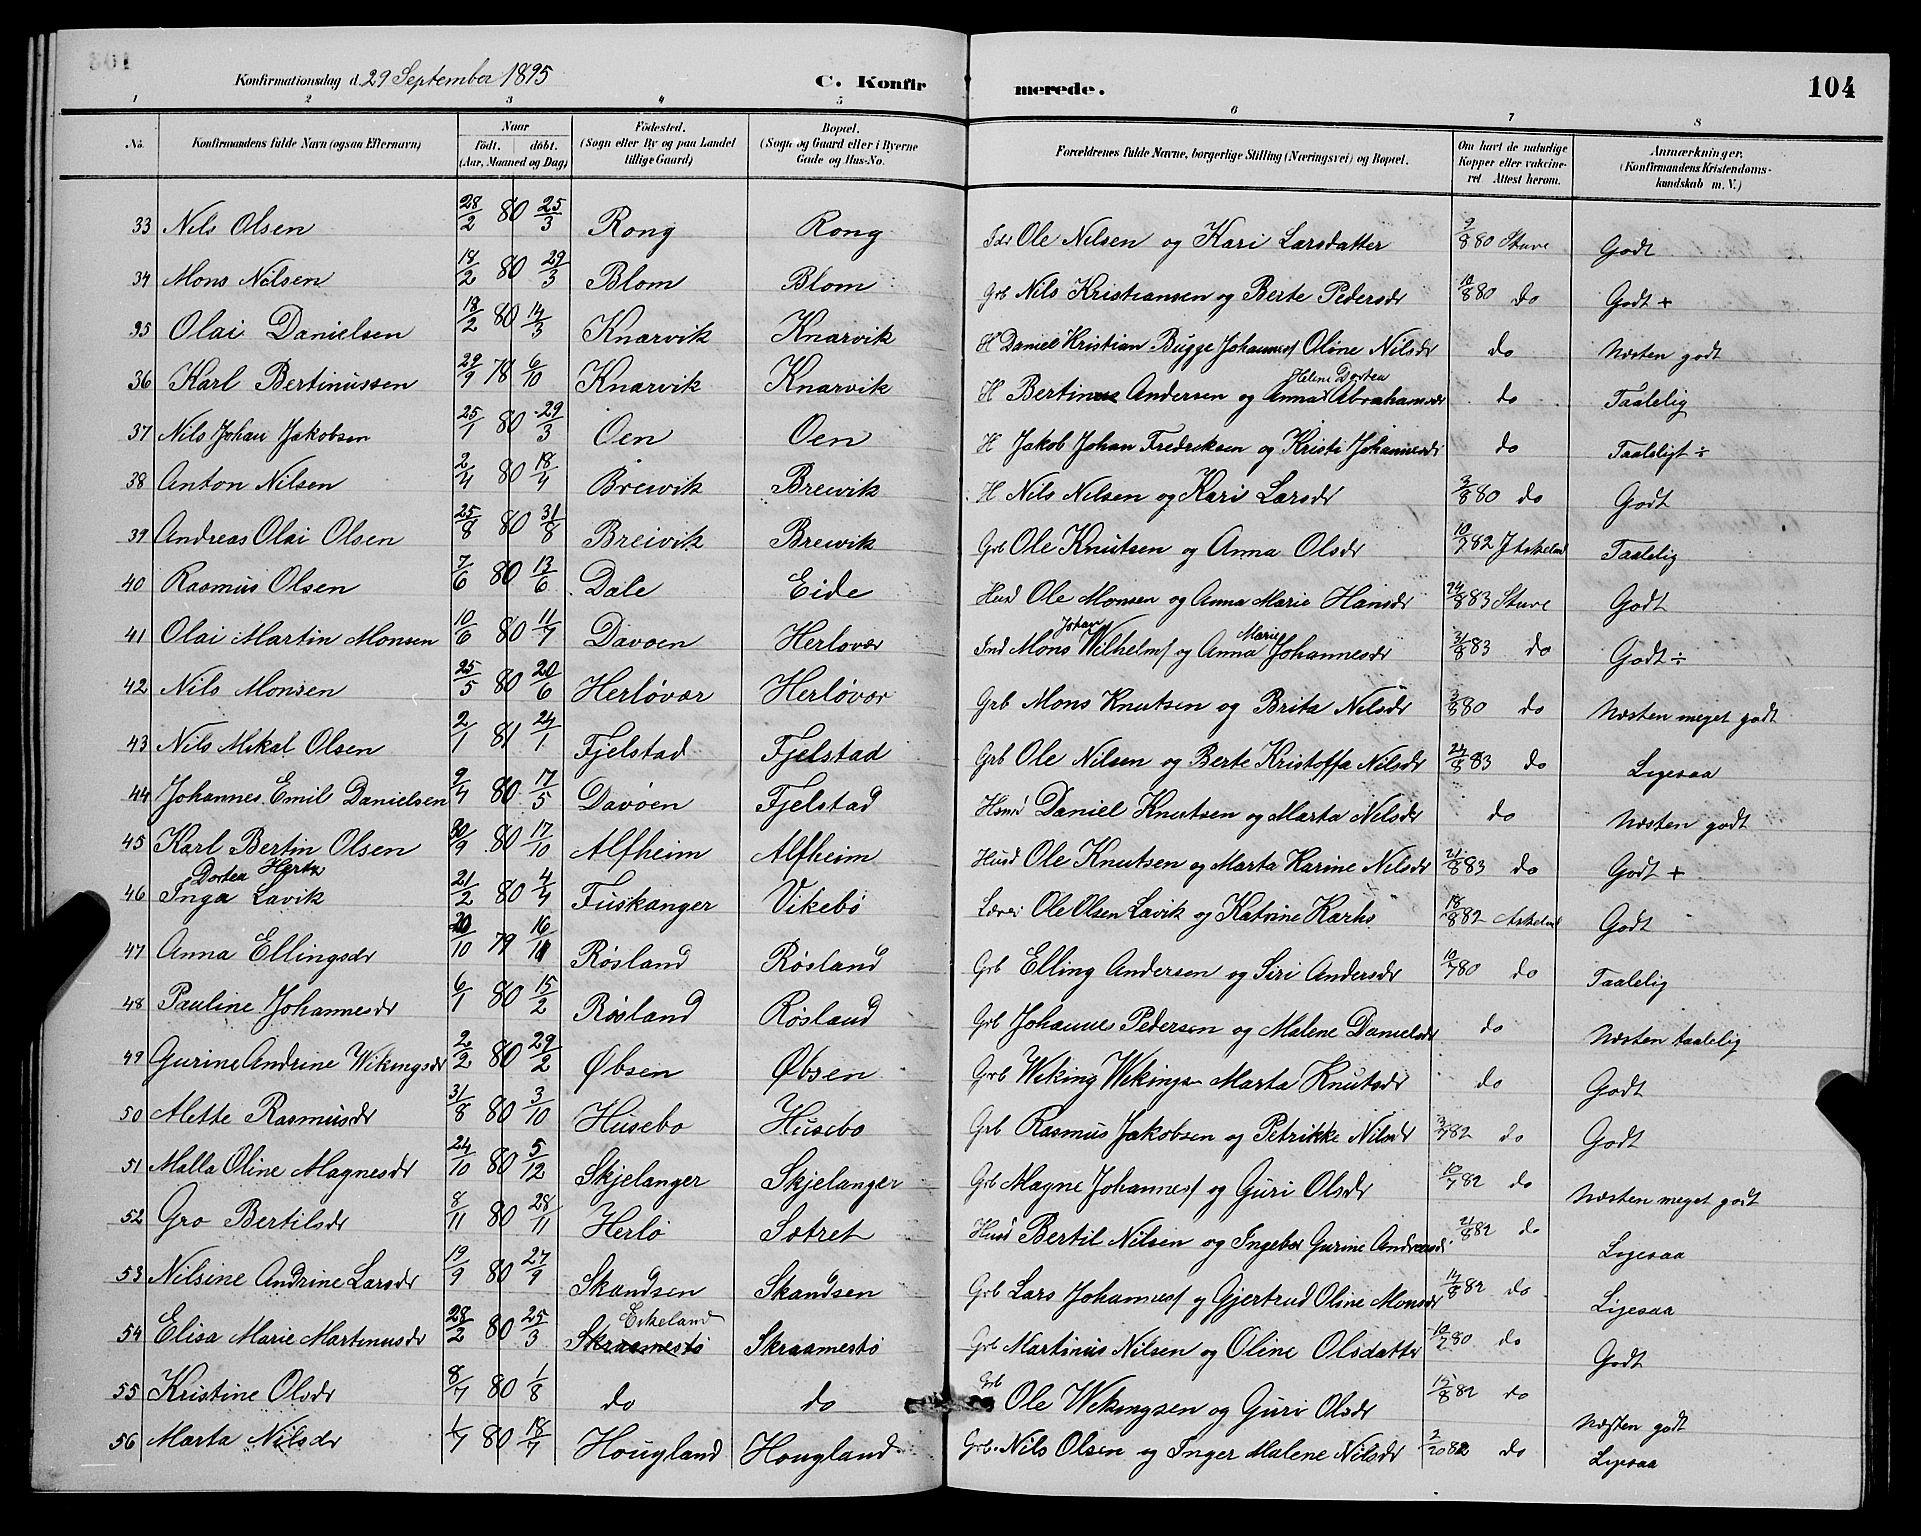 Konfirmationsdag d. 29 September 1895 C. Konfirmerede. 104
1 2 3 4 5 6 7 8
No. Konfirmandens fulde Navn (ogsaa Efternavn) Naar født. døbt. (Aar, Maaned og Dag) Fødested. (Sogn eller By og paa Landet tillige Gaard) Bopæl. (Sogn og Gaard eller i Byerne Gade og Hus-No. Forældrenes fulde Navne, borgerlige Stilling (Næringsvei) og Bopæl. Om havt de naturlige Kopper eller vakcineret Attest herom. Anmærkninger. (Konfirmandens Kristendomskundskab m. V.)
33 Nils Olsen 28/2 80 25/3 Rong Rong Ole Nilsen og Kari Larsdatter 80 Stuve Godt
34 Mons Nilsen 18/2 80 29/3 Blom Blom Grb Nils Kristiansen og Berte Pedersdr 10/8 80 do Godt +
35 Olai Danielsen 18/2 80 14/3 Knarvik Knarvik H Daniel Kristian Bugge Johannes Oline Nilsdr do Næsten godt
36 Karl Bertinussen 29/9 78 6/10 Knarvik Knarvik H Bertinus Andersen og Anna Helene Dortea Abrahamsdr do Taalelig
37 Nils Johan Jakobsen 25/1 80 29/3 Oen Oen H Jakob Johan Fredriksen og Kristi Johannesdr do Taaleligt ÷
38 Anton Nilsen 2/4 80 18/4 Breivik Breivik H Nils Nilsen og Kari Larsdr 3/8 80 do Godt
39 Andreas Olai Olsen 25/8 80 31/8 Breivik Breivik Grb Ole Knutsen og Anna Olsdr 10/7 82 Taalelig
40 Rasmus Olsen 7/6 80 13/6 Dale Eide Husd Ole Monsen og Anna Marie Hansdr 24/8 83 Stuve Godt
41 Olai Martin Monsen 10/6 80 11/7 Davøen Herløvær Ind Mons Johan Wilhelms og Anna Marie Johannesdr 31/8 83 do Godt ÷
42 Nils Monsen 25/5 80 20/6 Herløvær Herløvær Grb Mons Knutsen og Brita Nilsdr 3/8 80 do Næsten meget godt
43 Nils Mikal Olsen 2/1 81 24/1 Fjelstad Fjelstad Grb Ole Nilsen og Berte Kristoffa Nilsdr 24/8 83 do Ligesaa
44 Johannes Emil Danielsen 9/4 80 17/5 Davøen Fjelstad Daniel Knutsen og Marta Nilsdr do Næsten godt
45 Karl Bertin Olsen 30/9 80 17/10 Alfheim Alfheim Husd Ole Knutsen og Marta Karine Nilsdr 83 do Godt +
46 Inga Dortea Lavik 21/2 80 4/4 Fuskanger Vikebø Lærer Ole Olsen Lavik og Katrine 18/8 82 Askeland Godt
47 Anna Ellingsdr 20/10 79 16/11 Røsland Røsland Grb Elling Andersen og Siri Andersdr 10/7 80 do Taalelig
48 Pauline Johannesdr 6/1 80 15/2 Røsland Røsland Grb Johannes Pedersen og Malene Danielsdr do Næsten taalelig
49 Gurine Andrine Wikingsdr 2/2 80 29/2 Øbsen Øbsen Grb Wiking Wikingsen Marta Knutsdr do Godt
50 Mette Rasmusdr 31/8 80 3/10 Husebø Husebo Grb Rasmus Jakobsen og Petrikke Nilsdr 82 do Godt
51 Malla Oline Magnesdr 24/10 80 5/12 Skjelanger Skjelanger Grb Magne Johannes og Guri Olsdr 10/7 82 do Næsten meget godt
52 Gro Bertilsdr 8/11 80 28/11 Herlø Sætret Husd Bertil Nilsen og Ingebor Gurine Andreasdr 21/8 82 do Ligesaa
53 Nilsine Andrine Larsdr 19/9 80 27/9 Skandsen Skandsen Grb Lars Johannes og Gjertrud Oline Monsdr 82 do Ligesaa
54 Elisa Marie Martinusdr 28/2 80 25/3 Skraamestø Eikeland Skraamestø Grb Martinius Nilsen og Oline Olsdatter 10/7 80 do Godt
55 Kristine Olsdr 8/7 80 1/8 do do Grb Ole Wikingsen og Guri Olsdr 15/8 82 do Næsten godt
56 Marta Nilsdr 1/7 80 18/7 Hougland Hougland Grb Nils Olsen og Inger Malene Nilsdr 2/10 82 do Ligesaa